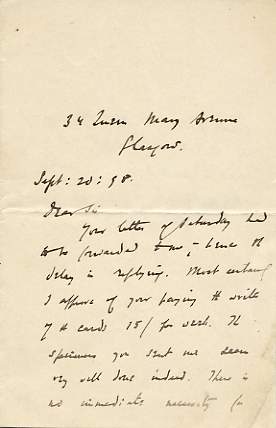 34 Queen Mary Avenue
Glasgow.
Sept: 20: 98.
Dear Sir
Your letter of Saturday had
to be forwarded to me, - hence the
delay in replying. Most certainly
I approve of your paying the writer
of the cards 15/ per week. The
specimens you sent me seem
very well done indeed. There is
no immediate necessity for